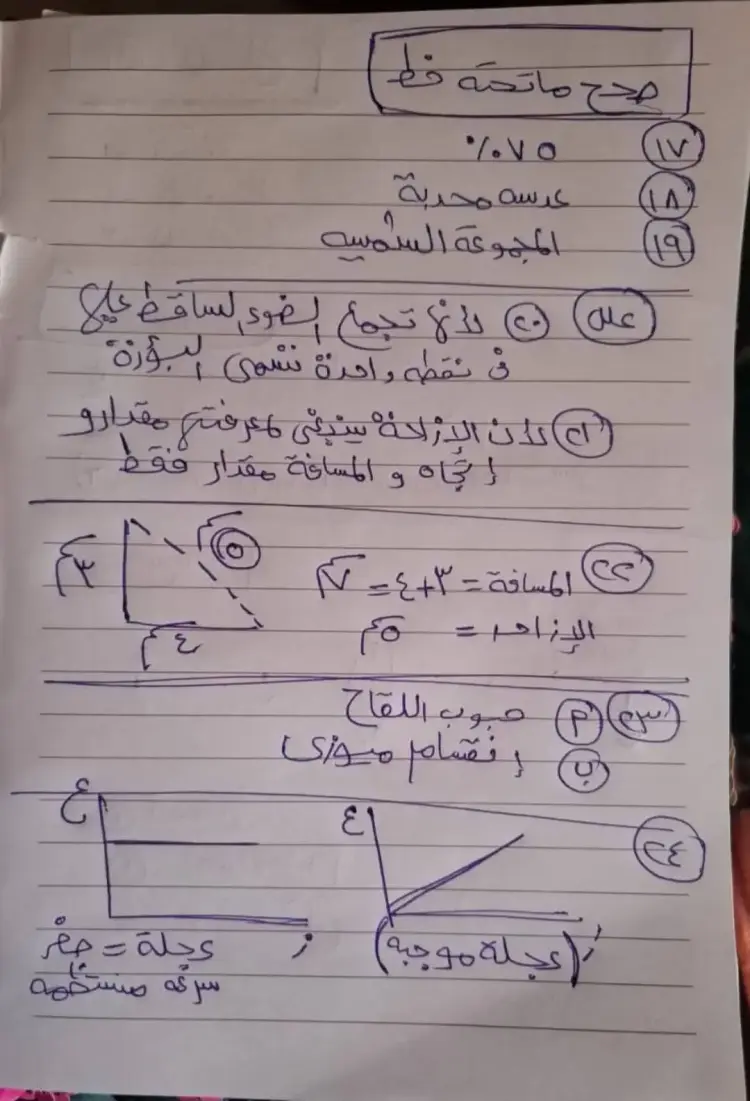 صحح ماتحته خط
١٧ ٧٥٪
١٨ عدسه محدبة
١٩ المجموعة الشمسيه
علل ٢٠ لأنها تجمع الضوء الساقط عليها
فى نقطه واحدة تسمى البؤرة
٢١ لأن الإزاحة ينبغى لمعرفتها مقدار و
إتجاه و المسافة مقدار فقط
٢٢ المسافة = ٣+٤ = ٧م
الإزاحه = ٥م
٣م
٥م
٤م
٢٣ م حبوب اللقاح
ب إنقسام ميوزى
٢٤
ع
ز
(عجلة موجبه)
ع
ز
عجلة = صفر
سرعه منتظمه